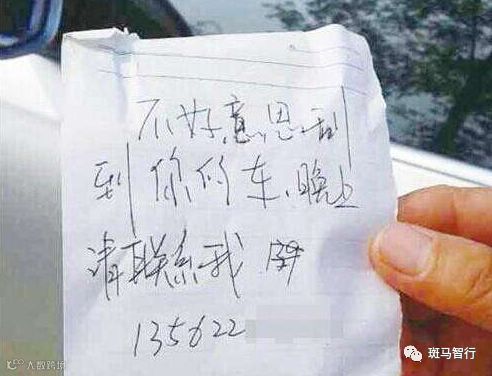 不好意思刮
到你的车、晚上
请联系我
135622
大数跨境
斑马智行